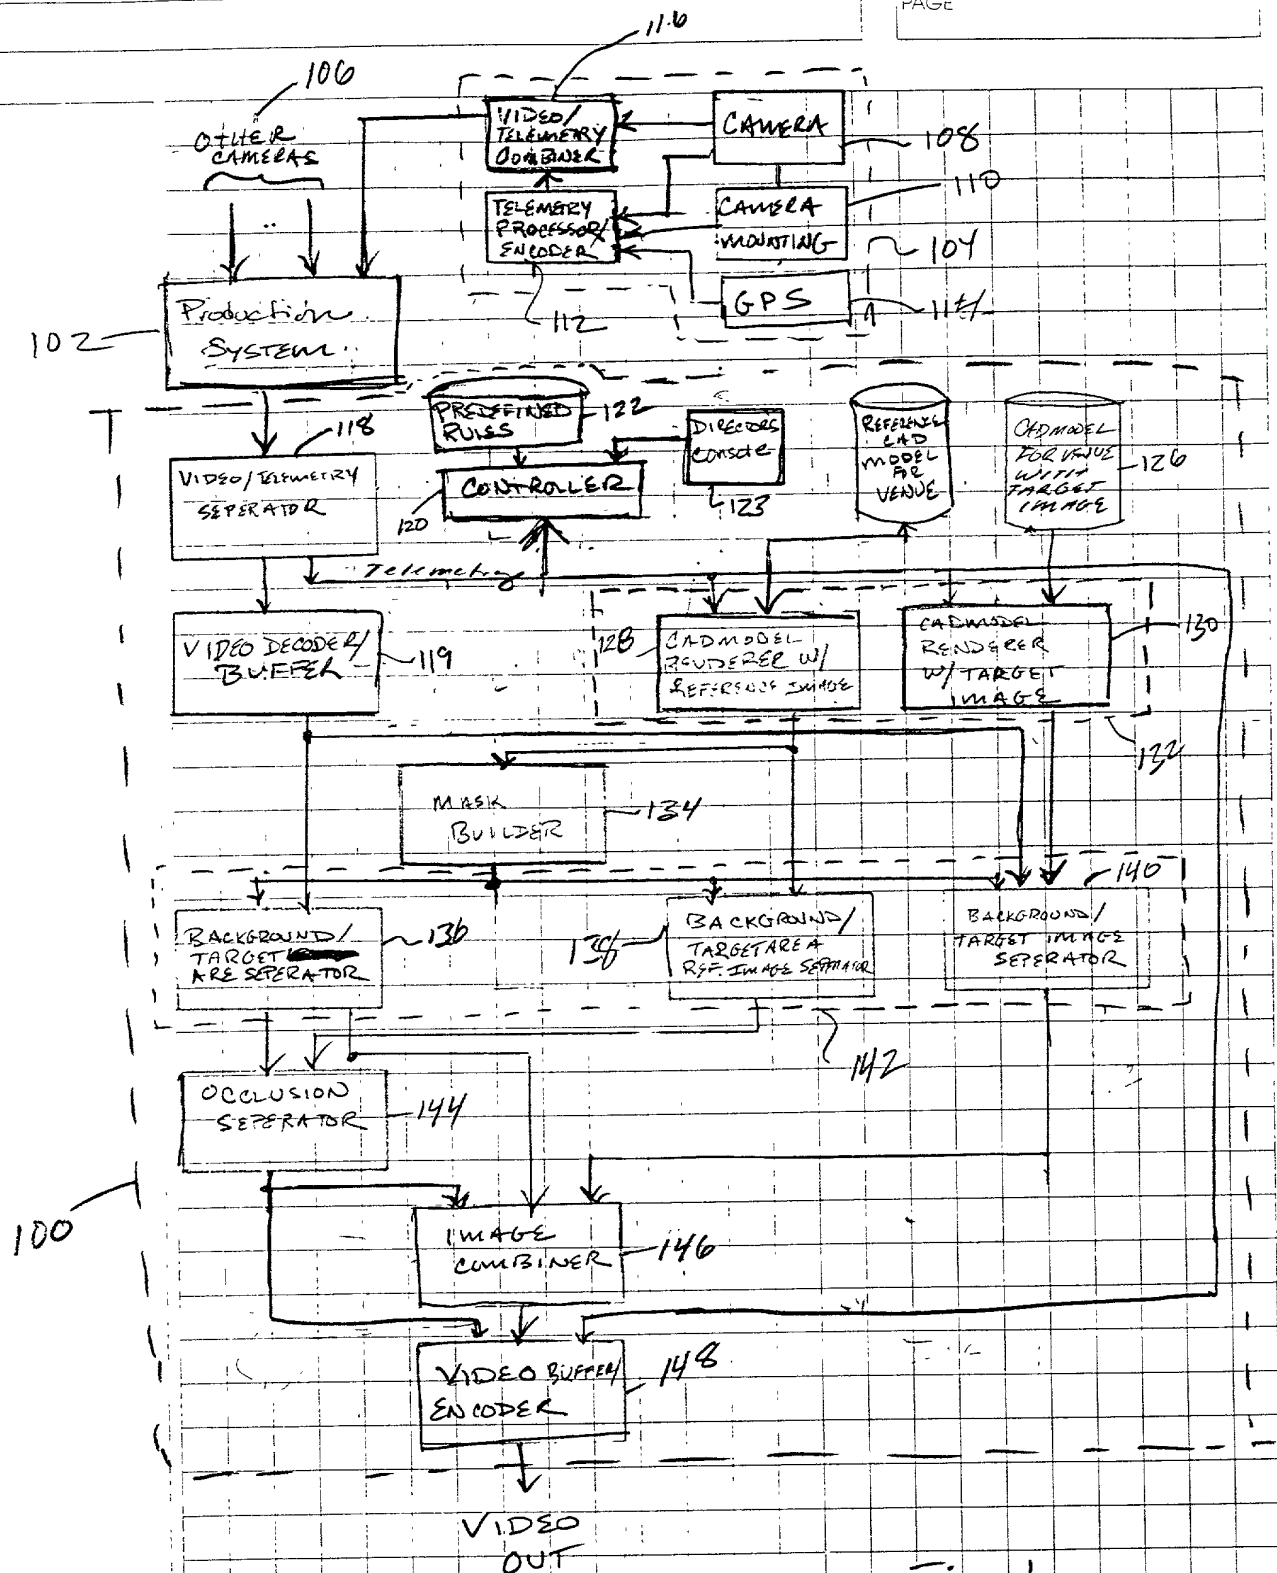 PAGE
116
106
OTHER
CAMERAS
VIDEO/
TELEMETRY
COMBINER
CAMERA
108
TELEMETRY
PROCESSOR/
ENCODER
CAMERA
MOUNTING
110
104
GPS
114
112
102
Production
SYSTEM
118
PREDEFINED
RULES
122
DIRECTORS
Console
123
REFERENCE
CAD
MODEL
FOR
VENUE
CADMODEL
FOR VENUE
WITH
TARGET
IMAGE
126
VIDEO/TELEMETRY
SEPERATOR
CONTROLLER
120
Telemetry
VIDEO DECODER/
BUFFER
119
128
CADMODEL
RENDERER W/
REFERENCE IMAGE
CADMODEL
RENDERER
W/TARGET
IMAGE
130
132
MASK
BUILDER
134
140
BACKGROUND/
TARGET
ARE SEPERATOR
136
138
BACKGROUND/
TARGETAREA
REF. IMAGE SEPERATOR
BACKGROUND/
TARGET IMAGE
SEPERATOR
142
OCCLUSION
SEPERATOR
144
100
IMAGE
COMBINER
146
VIDEO BUFFER/
ENCODER
148
VIDEO
OUT